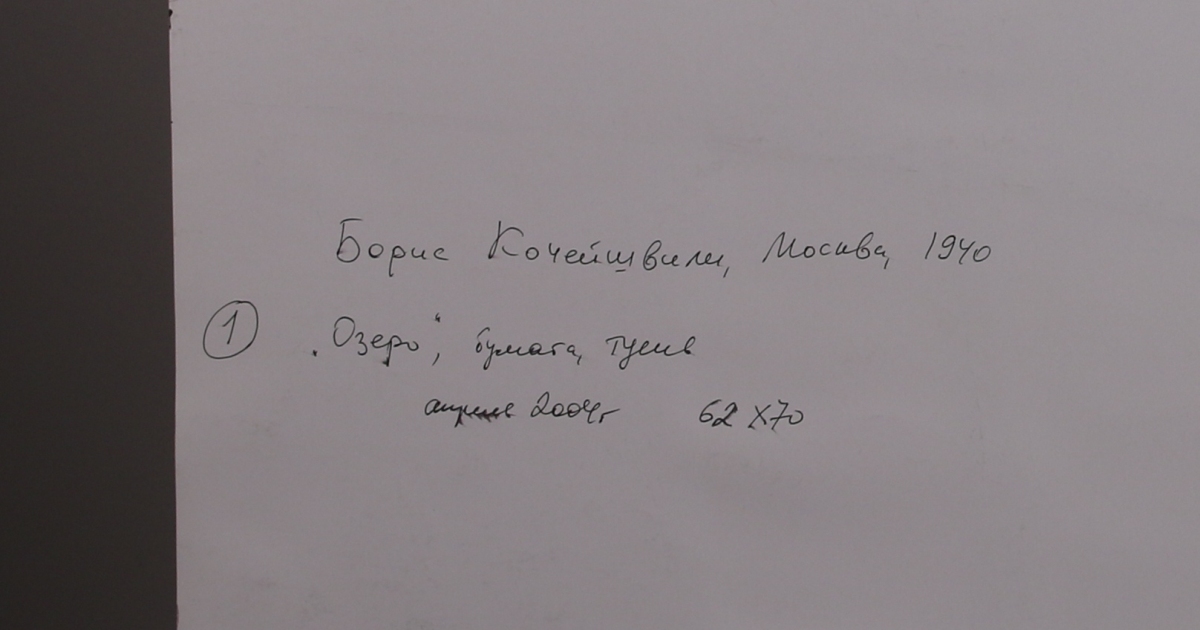 Борис Кочейшвили, Москва, 1940
① „Озеро“, бумага, тушь
апрель 2004г 62 х 70